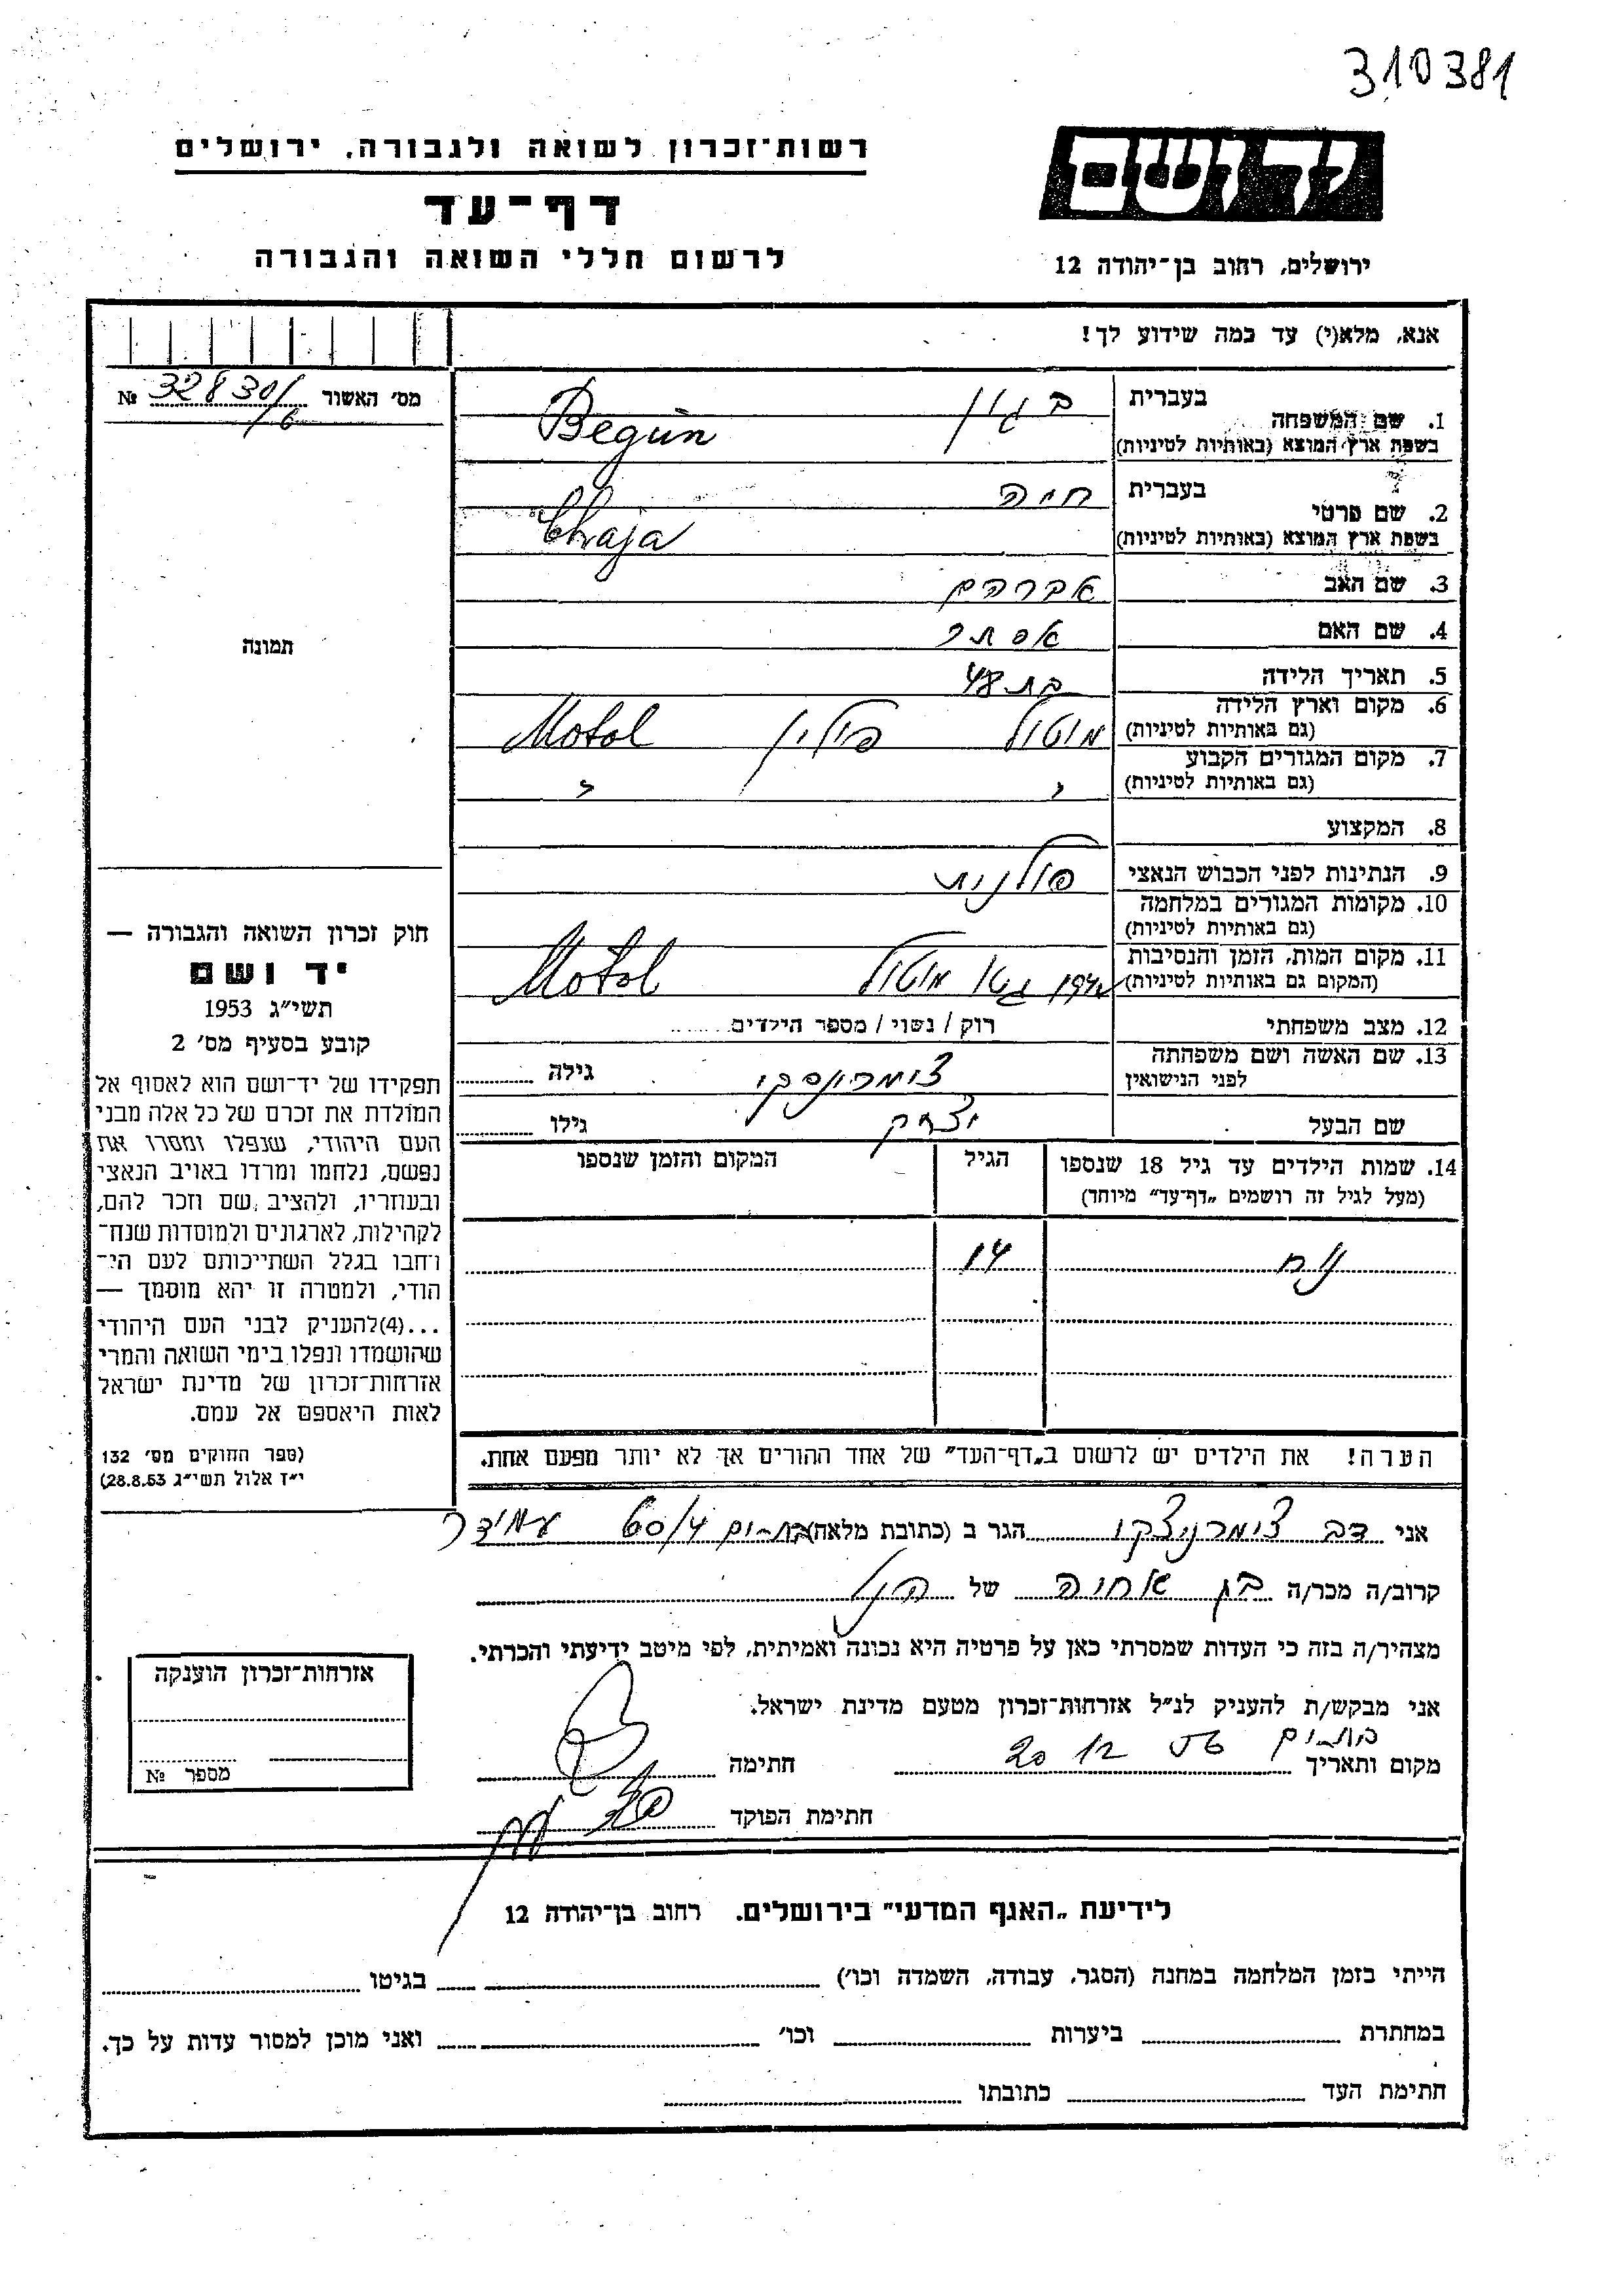 310381
רשות־זכרון לשואה ולגבורה, ירושלים
דף־עד
לרשום חללי השואה והגבורה
יד ושם
ירושלים, רחוב בן־יהודה 12
אנא, מלא(י) עד כמה שידוע לך!
מס׳ האשור № 32830/6
תמונה
חוק זכרון השואה והגבורה —
יד ושם
תשי״ג 1953
קובע בסעיף מס׳ 2
תפקידו של יד־ושם הוא לאסוף אל
המולדת את זכרם של כל אלה מבני
העם היהודי, שנפלו ומסרו את
נפשם, נלחמו ומרדו באויב הנאצי
ובעוזריו, ולהציב שם וזכר להם,
לקהילות, לארגונים ולמוסדות שנח־
רחבו בגלל השתייכותם לעם הי־
הודי, ולמטרה זו יהא מוסמך —
...(4)להעניק לבני העם היהודי
שהושמדו ונפלו בימי השואה והמרי
אזרחות־זכרון של מדינת ישראל
לאות היאספם אל עמם.
(ספר החוקים מס׳ 132
י״ז אלול תשי״ג 28.8.53)
1. שם המשפחה בעברית בגון
בשפת ארץ המוצא (באותיות לטיניות) Begun
2. שם פרטי בעברית חיה
בשפת ארץ המוצא (באותיות לטיניות) Chaja
3. שם האב אברהם
4. שם האם אסתר
5. תאריך הלידה בת 48
6. מקום וארץ הלידה (גם באותיות לטיניות) מוטול פולין Motol
7. מקום המגורים הקבוע (גם באותיות לטיניות) " "
8. המקצוע
9. הנתינות לפני הכבוש הנאצי פולנית
10. מקומות המגורים במלחמה (גם באותיות לטיניות)
11. מקום המות, הזמן והנסיבות (המקום גם באותיות לטיניות) 1942 גטו מוטול Motol
12. מצב משפחתי רוק / נשוי / מספר הילדים
13. שם האשה ושם משפחתה לפני הנישואין גילה
שם הבעל יצחק גילו
14. שמות הילדים עד גיל 18 שנספו הגיל המקום והזמן שנספו
(מעל לגיל זה רושמים „דף־עד״ מיוחד)
נח 14
הערה! את הילדים יש לרשום ב„דף־העד״ של אחד ההורים אך לא יותר מפעם אחת.
אני דב הגר ב (כתובת מלאה) בת-ים 60/4 עמידר
קרוב/ה מכר/ה בן אחיה של הנ״ל
מצהיר/ה בזה כי העדות שמסרתי כאן על פרטיה היא נכונה ואמיתית, לפי מיטב ידיעתי והכרתי.
אני מבקש/ת להעניק לנ״ל אזרחות־זכרון מטעם מדינת ישראל.
מקום ותאריך בת-ים 20 12 56 חתימה
חתימת הפוקד
אזרחות־זכרון הוענקה
מספר №
לידיעת „האגף המדעי״ בירושלים. רחוב בן־יהודה 12
הייתי בזמן המלחמה במחנה (הסגר, עבודה, השמדה וכו׳) בגיטו
במחתרת ביערות וכו׳ ואני מוכן למסור עדות על כך.
חתימת העד כתובתו